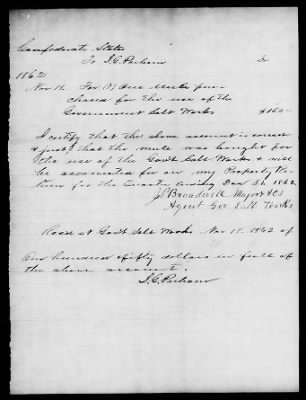 Confederate States
To I. C. Parham Dr
1862
Nov 18. For One Mule pur-
chased for the use of the
Government Salt Works $150.00
I certify that the above account is correct
& just; that the mule was bought for
the use of the Govt Salt Works & will
be accounted for on my Property Re-
turn for the Quarter ending Dec 31, 1862
J. P. Broadwell Major & CS
Agent Gov Salt Works
Recd at Govt Salt Works Nov 18. 1862 of
One hundred & fifty dollars in full of
the above account.
I. C. Parham